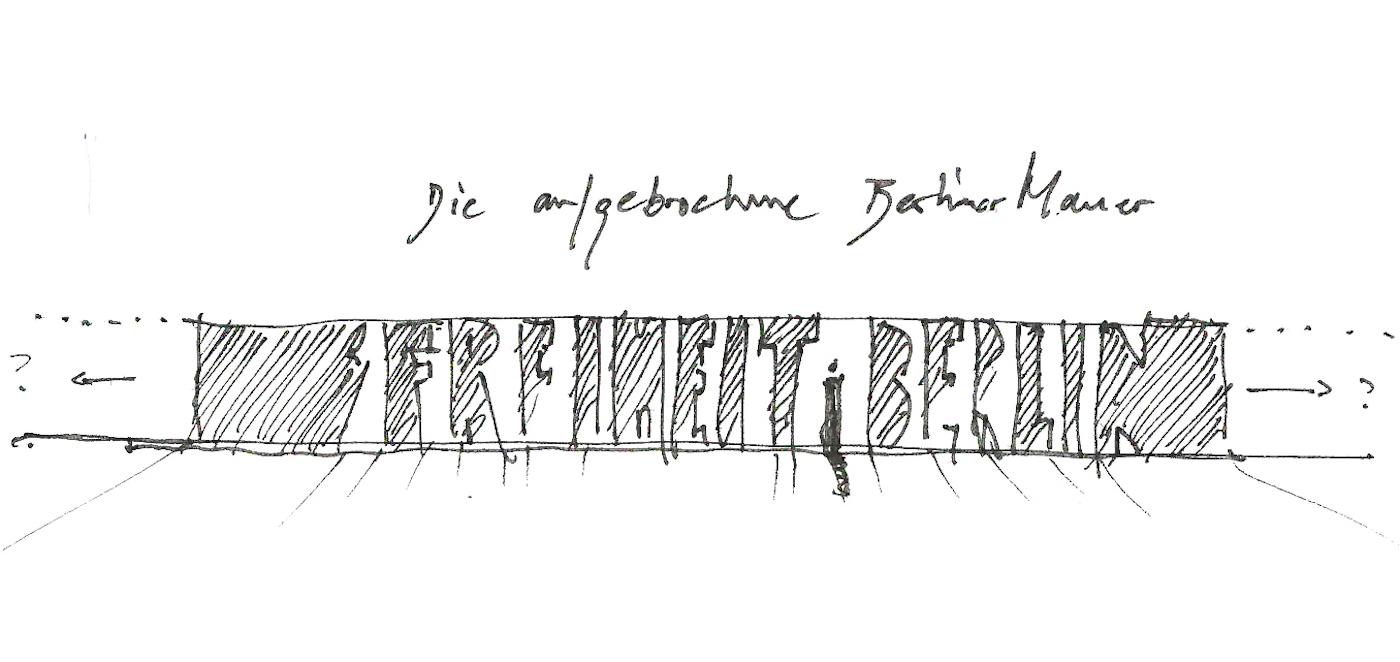 Die aufgebrochene Berliner Mauer
? FREIHEIT BERLIN ?